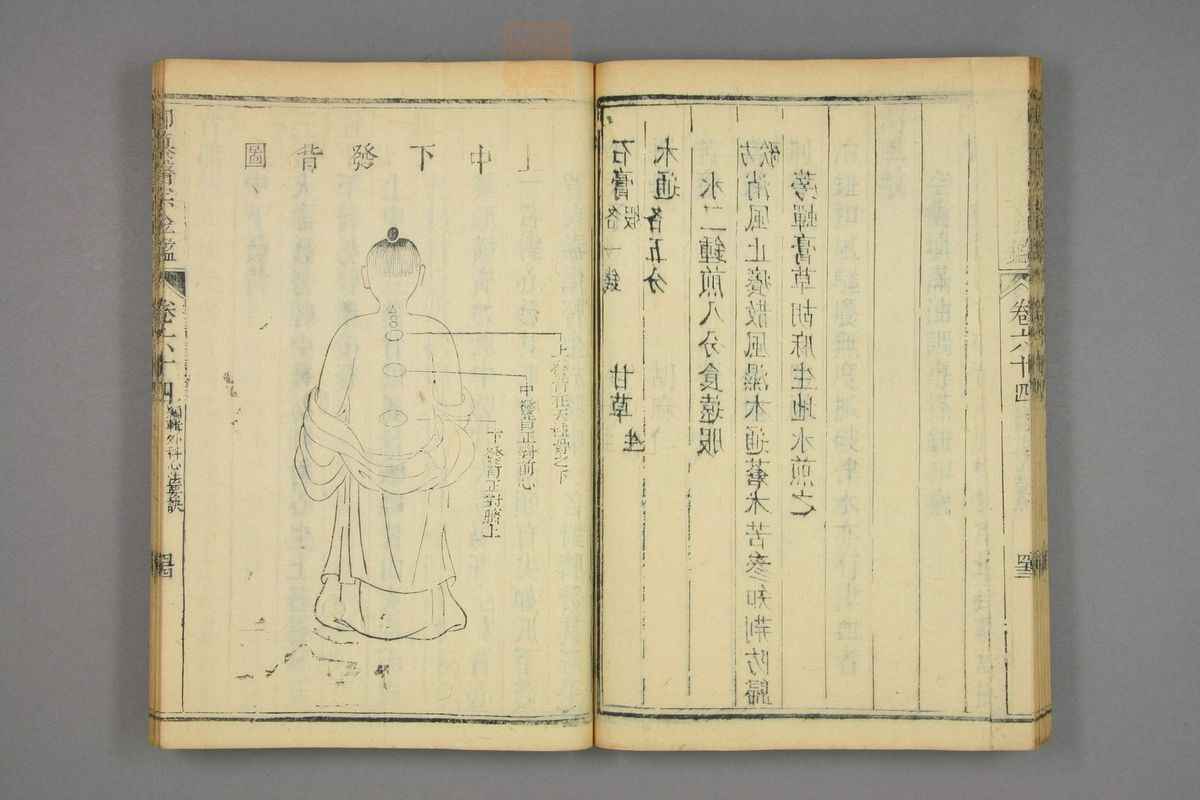 石膏煅各一錢 甘草生
木通各五分
水二鍾煎八分食遠服
方歌消風止癢散風濕木通蒼术苦參知荊防歸
蒡蟬膏草胡麻生地水煎之
鑑 卷六十四
上中下發背圖
上發背在天柱骨之下
中發背正對前心
下發背正對臍上
御纂醫宗金鑑 卷六十四 編輯外科心法要訣